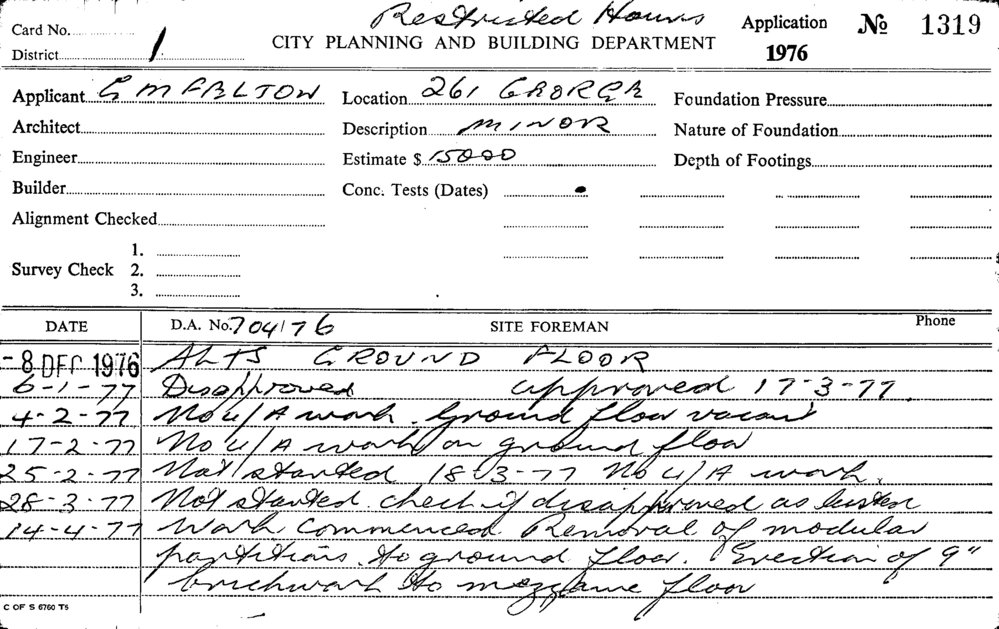 Restricted Hours
Card No. Application № 1319
CITY PLANNING AND BUILDING DEPARTMENT
District 1 1976
Applicant G M FELTON Location 261 GEORGE Foundation Pressure
Architect Description MINOR Nature of Foundation
Engineer Estimate $ 15000 Depth of Footings
Builder Conc. Tests (Dates)
Alignment Checked
1.
Survey Check 2.
3.
DATE D.A. No. 704/76 SITE FOREMAN Phone
-8 DEC 1976 ALTS GROUND FLOOR
6-1-77 Disapproved approved 17-3-77.
4-2-77 No U/A work. Ground floor vacant
17-2-77 No U/A work on ground floor
25-2-77 Not started 18-3-77 No U/A work.
28-3-77 Not started. check if disapproved as listed
14-4-77 Work Commenced Removal of modular
partitions to ground floor. Erection of 9"
brickwork to mezzanine floor
C OF S 6760 T5